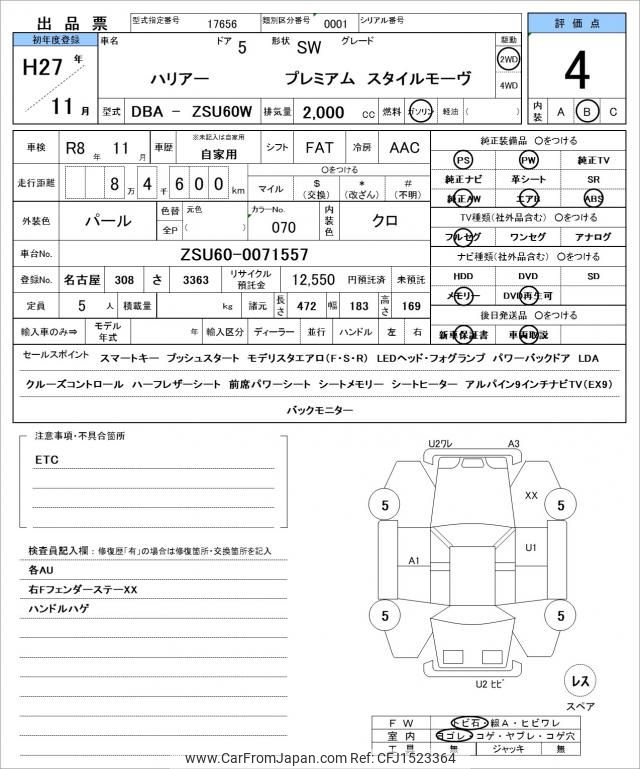 出品票 型式指定番号 17656 類別区分番号 0001 シリアル番号
評価点
初年度登録 車名 ドア 5 形状 SW グレード 駆動
H27 年 ハリアー プレミアム スタイルモーヴ 2WD 4
11 月 4WD
型式 DBA - ZSU60W 排気量 2,000 cc 燃料 ガソリン 軽油 ( ) 内装 A B C
車検 R8 年 11 月 車歴 ※未記入は自家用 自家用 シフト FAT 冷房 AAC
純正装備品 〇をつける
PS PW 純正TV
走行距離 8 万 4 千 6 0 0 km
〇をつける
マイル $ (交換) * (改ざん) # (不明)
純正ナビ 革シート SR
純正AW エアB ABS
外装色 パール 色替 元色 カラーNo. 内装色 クロ
全P ( ) 070
TV種類(社外品含む) 〇をつける
フルセグ ワンセグ アナログ
車台No. ZSU60-0071557
ナビ種類(社外品含む) 〇をつける
登録No. 名古屋 308 さ 3363 リサイクル預託金 12,550 円預託済 未預託
HDD DVD SD
定員 5 人 積載量 kg 諸元 長さ 472 幅 183 高さ 169
メモリー DVD再生可
後日発送品 〇をつける
輸入車のみ⇒ モデル年式 年 輸入区分 ディーラー 並行 ハンドル 左 右
新車保証書 車両取説
セールスポイント スマートキー プッシュスタート モデリスタエアロ(F・S・R) LEDヘッド・フォグランプ パワーバックドア LDA
クルーズコントロール ハーフレザーシート 前席パワーシート シートメモリー シートヒーター アルパイン9インチナビTV(EX9)
バックモニター
注意事項・不具合箇所
ETC
検査員記入欄:修復歴「有」の場合は修復箇所・交換箇所を記入
各AU
右FフェンダーステーXX
ハンドルハゲ
U2ワレ A3
XX
5 5
A1 U1
5 5
U2 ヒビ
レス
スペア
FW トビ石・線A・ヒビワレ
室内 ヨゴレ・コゲ・ヤブレ・コゲ穴
工具 無 ジャッキ 無
www.CarFromJapan.com Ref: CFJ1523364